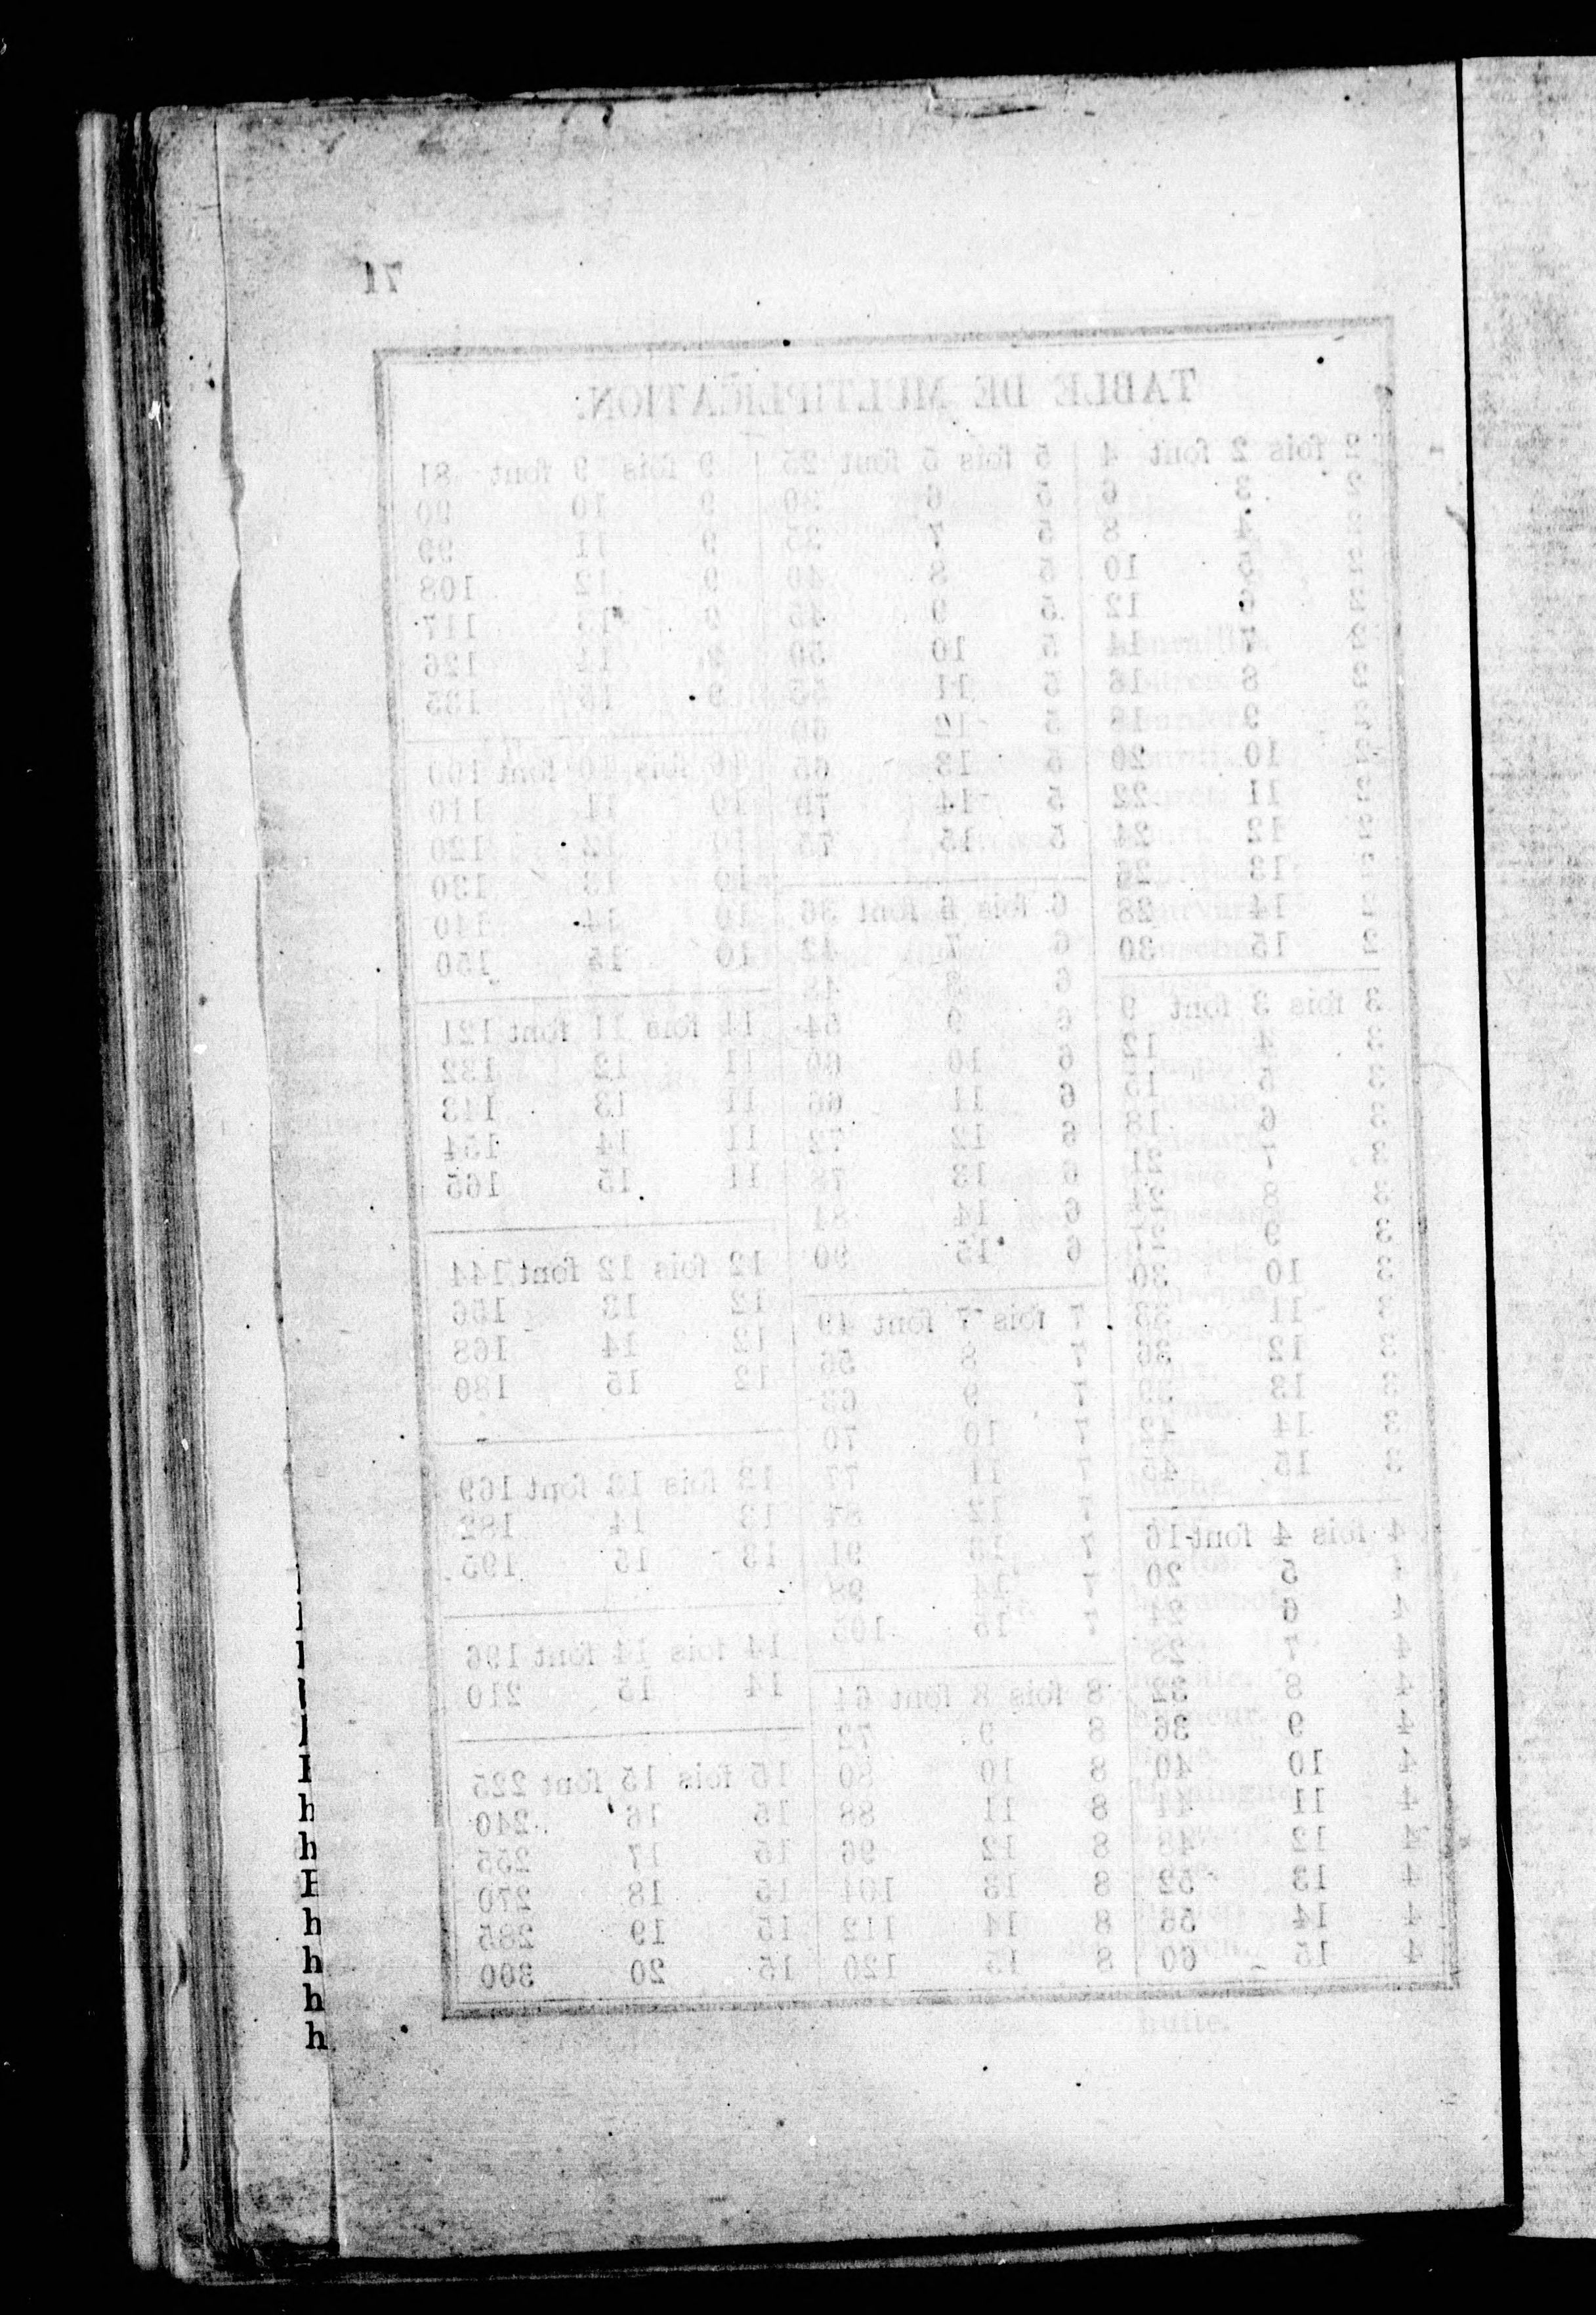 71
TABLE DE MULTIPLICATION.
2 fois 2 font 4
2 3 6
2 4 8
2 5 10
2 6 12
2 7 14
2 8 16
2 9 18
2 10 20
2 11 22
2 12 24
2 13 26
2 14 28
2 15 30
3 fois 3 font 9
3 4 12
3 5 15
3 6 18
3 7 21
3 8 24
3 9 27
3 10 30
3 11 33
3 12 36
3 13 39
3 14 42
3 15 45
4 fois 4 font 16
4 5 20
4 6 24
4 7 28
4 8 32
4 9 36
4 10 40
4 11 44
4 12 48
4 13 52
4 14 56
4 15 60
5 fois 5 font 25
5 6 30
5 7 35
5 8 40
5 9 45
5 10 50
5 11 55
5 12 60
5 13 65
5 14 70
5 15 75
6 fois 6 font 36
6 7 42
6 8 48
6 9 54
6 10 60
6 11 66
6 12 72
6 13 78
6 14 84
6 15 90
7 fois 7 font 49
7 8 56
7 9 63
7 10 70
7 11 77
7 12 84
7 13 91
7 14 98
7 15 105
8 fois 8 font 64
8 9 72
8 10 80
8 11 88
8 12 96
8 13 104
8 14 112
8 15 120
9 fois 9 font 81
9 10 90
9 11 99
9 12 108
9 13 117
9 14 126
9 15 135
10 fois 10 font 100
10 11 110
10 12 120
10 13 130
10 14 140
10 15 150
11 fois 11 font 121
11 12 132
11 13 143
11 14 154
11 15 165
12 fois 12 font 144
12 13 156
12 14 168
12 15 180
13 fois 13 font 169
13 14 182
13 15 195
14 fois 14 font 196
14 15 210
15 fois 15 font 225
15 16 240
15 17 255
15 18 270
15 19 285
15 20 300
h
h
h
h
h
h